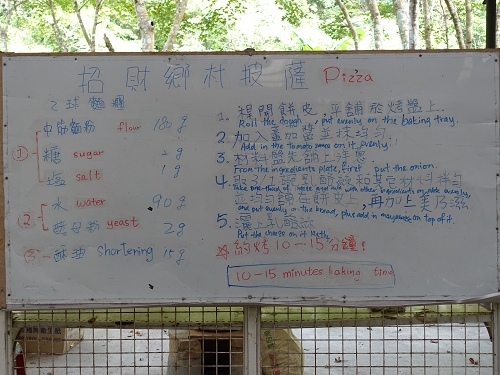 招財鄉村披薩 Pizza
2球麵糰
① 中筋麵粉 flour 180 g
糖 sugar 2 g
鹽 salt 1 g
② 水 water 90 g
酵母粉 yeast 2 g
③ 酥油 shortening 15 g
1. 擀開餅皮，平鋪於烤盤上.
Roll the dough, put evenly on the baking tray.
2. 加入蕃茄醬並抹均勻.
Add in the tomato sauce on it evenly.
3. 材料盤先鋪上洋蔥
From the ingredients plate, first put the onion.
4. 再 1/3 乳酪 和其它材料拌勻
Take one-third of cheese and mix with other ingredients on table evenly,
並均勻鋪在餅皮上，再加上美乃滋
and put evenly on the bread, plus add in mayonnaise on top of it.
5. 灑上乳酪絲
Put the cheese on it lastly.
約烤10-15分鐘!
10-15 minutes baking time